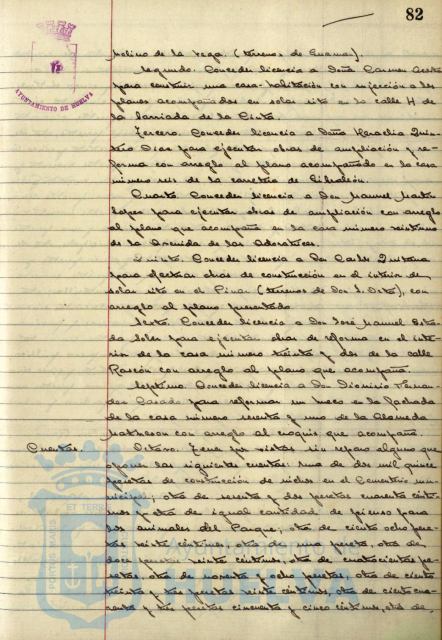 82
AYUNTAMIENTO DE HUELVA
Molino de la Vega. (terrenos de Enamar).
Segundo. Conceder licencia a Doña Carmen
para construir una casa-habitación con sujeción a los
planos acompañados en solar sito en la calle H de
la barriada de la Cinta.
Tercero. Conceder licencia a Doña Heraclia Quin-
tero Diaz para ejecutar obras de ampliación y re-
forma con arreglo al plano acompañado en la casa
número seis de la carretera de Gibraleón.
Cuarto. Conceder licencia a Don Manuel Martin
Lopez para ejecutar obras de ampliación con arreglo
al plano que acompaña en la casa número veintiuno
de la Avenida de las Adoratrices.
Quinto. Conceder licencia a Don Carlos Quintana
para efectuar obras de construcción en el interior de
solar sito en el Pinar (terrenos de Don ), con
arreglo al plano presentado
Sexto. Conceder licencia a Don José Manuel
para ejecutar obras de reforma en el inte-
rior de la casa número treinta y dos de la calle
Rascón con arreglo al plano que acompaña.
Septimo. Conceder licencia a Don Dionisio
Casado para reformar un hueco en la fachada
de la casa número sesenta y uno de la Alameda
con arreglo al croquis que acompaña.
Cuentas. Octavo. Tener por vistas sin reparo alguno que
oponer las siguientes cuentas: una de dos mil quince
pesetas de construcción de nichos en el Cementerio mu-
nicipal; otra de sesenta y dos pesetas cuarenta cénti-
mos y otra de igual cantidad de pienso para
los animales del Parque; otra de ciento ocho pese-
tas veinte céntimos, otra de una peseta, otra de
doce pesetas veinte céntimos, otra de cuatrocientas pe-
setas, otra de noventa y ocho pesetas, otra de ciento
treinta y tres pesetas veinte céntimos, otra de ciento cua-
renta y tres pesetas cincuenta y cinco céntimos, otra de
PORTUS MARIS ET TERRAE
Ayuntamiento de